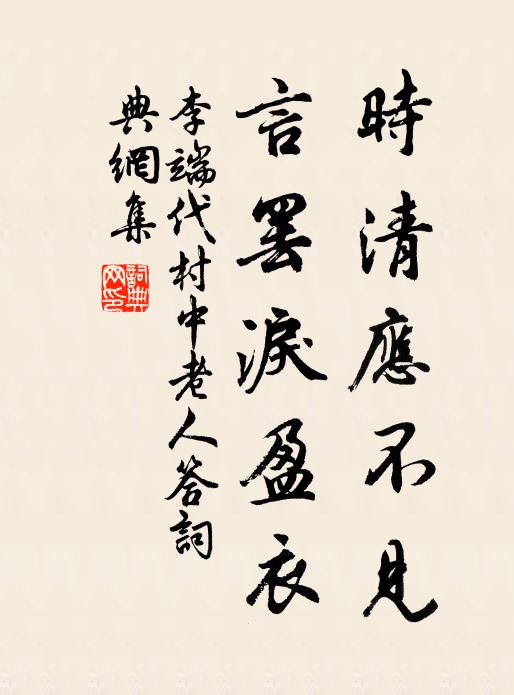 時清應不見
言罷淚盈衣
李端代村中老人答詞
典網集
詞典
网印